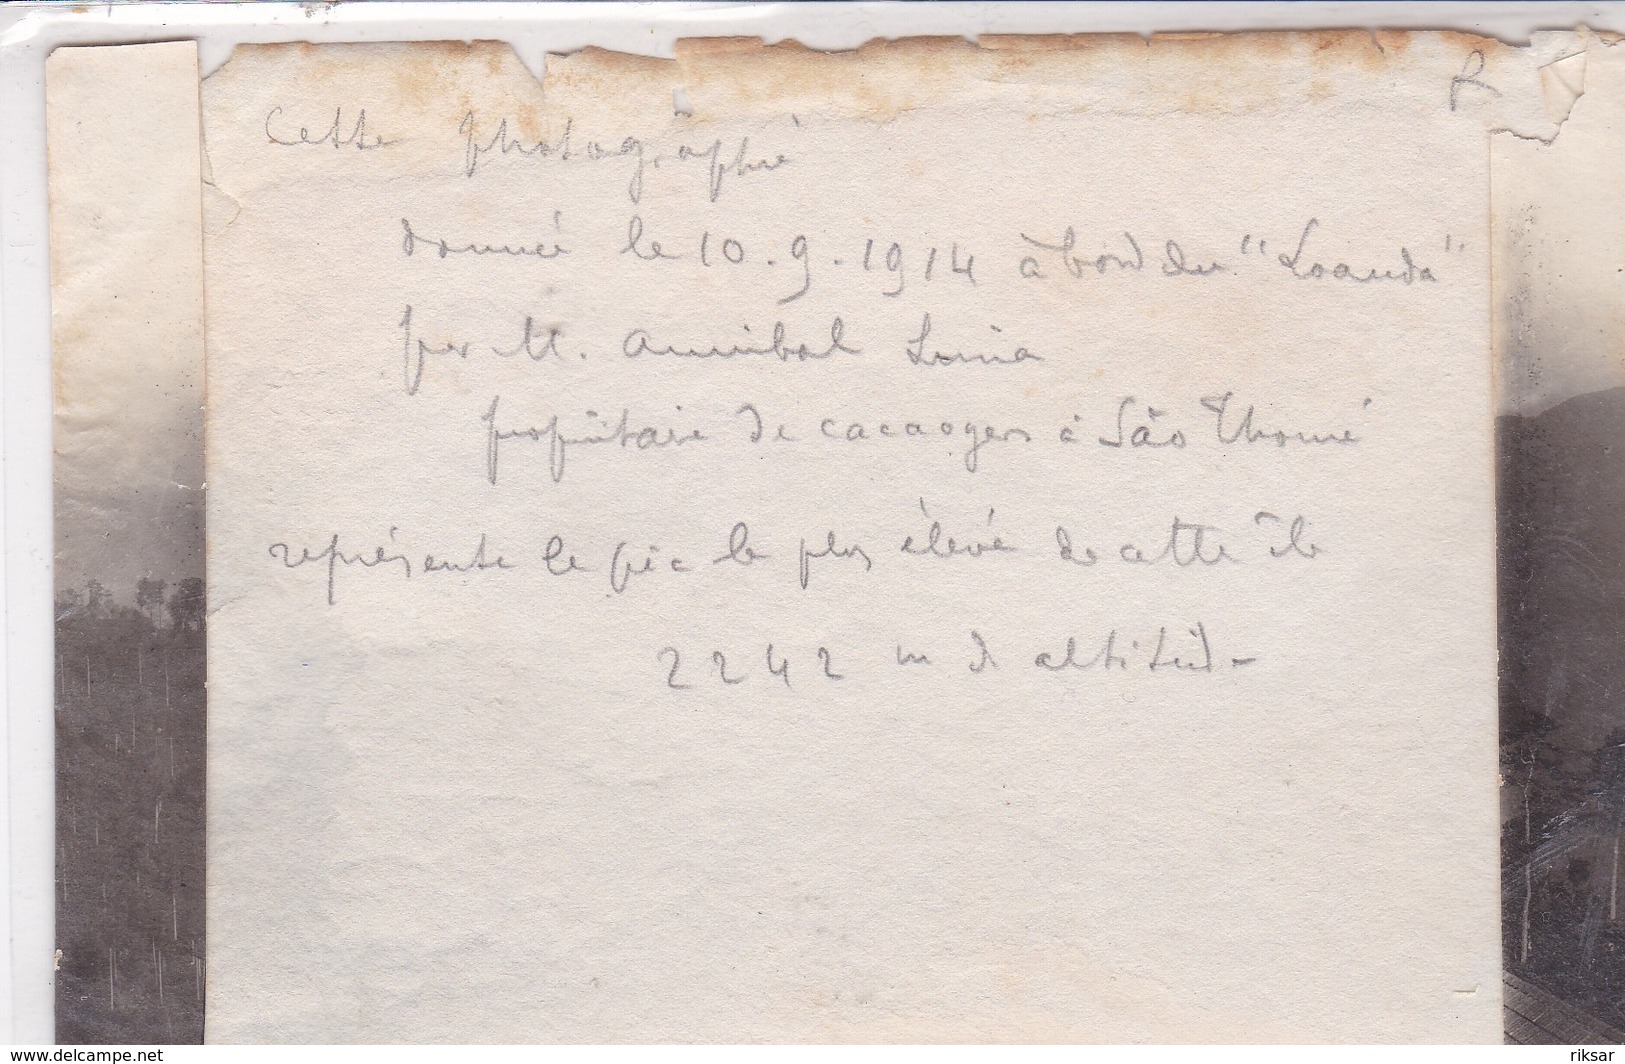 R
Cette photographie
donnée le 10.9.1914 à bord du "Loanda"
par M. Annibal
propriétaire de cacaoyers à São Thomé
représente le pic le plus élevé de cette île
2242 m d'altitude
www.delcampe.net
riksar